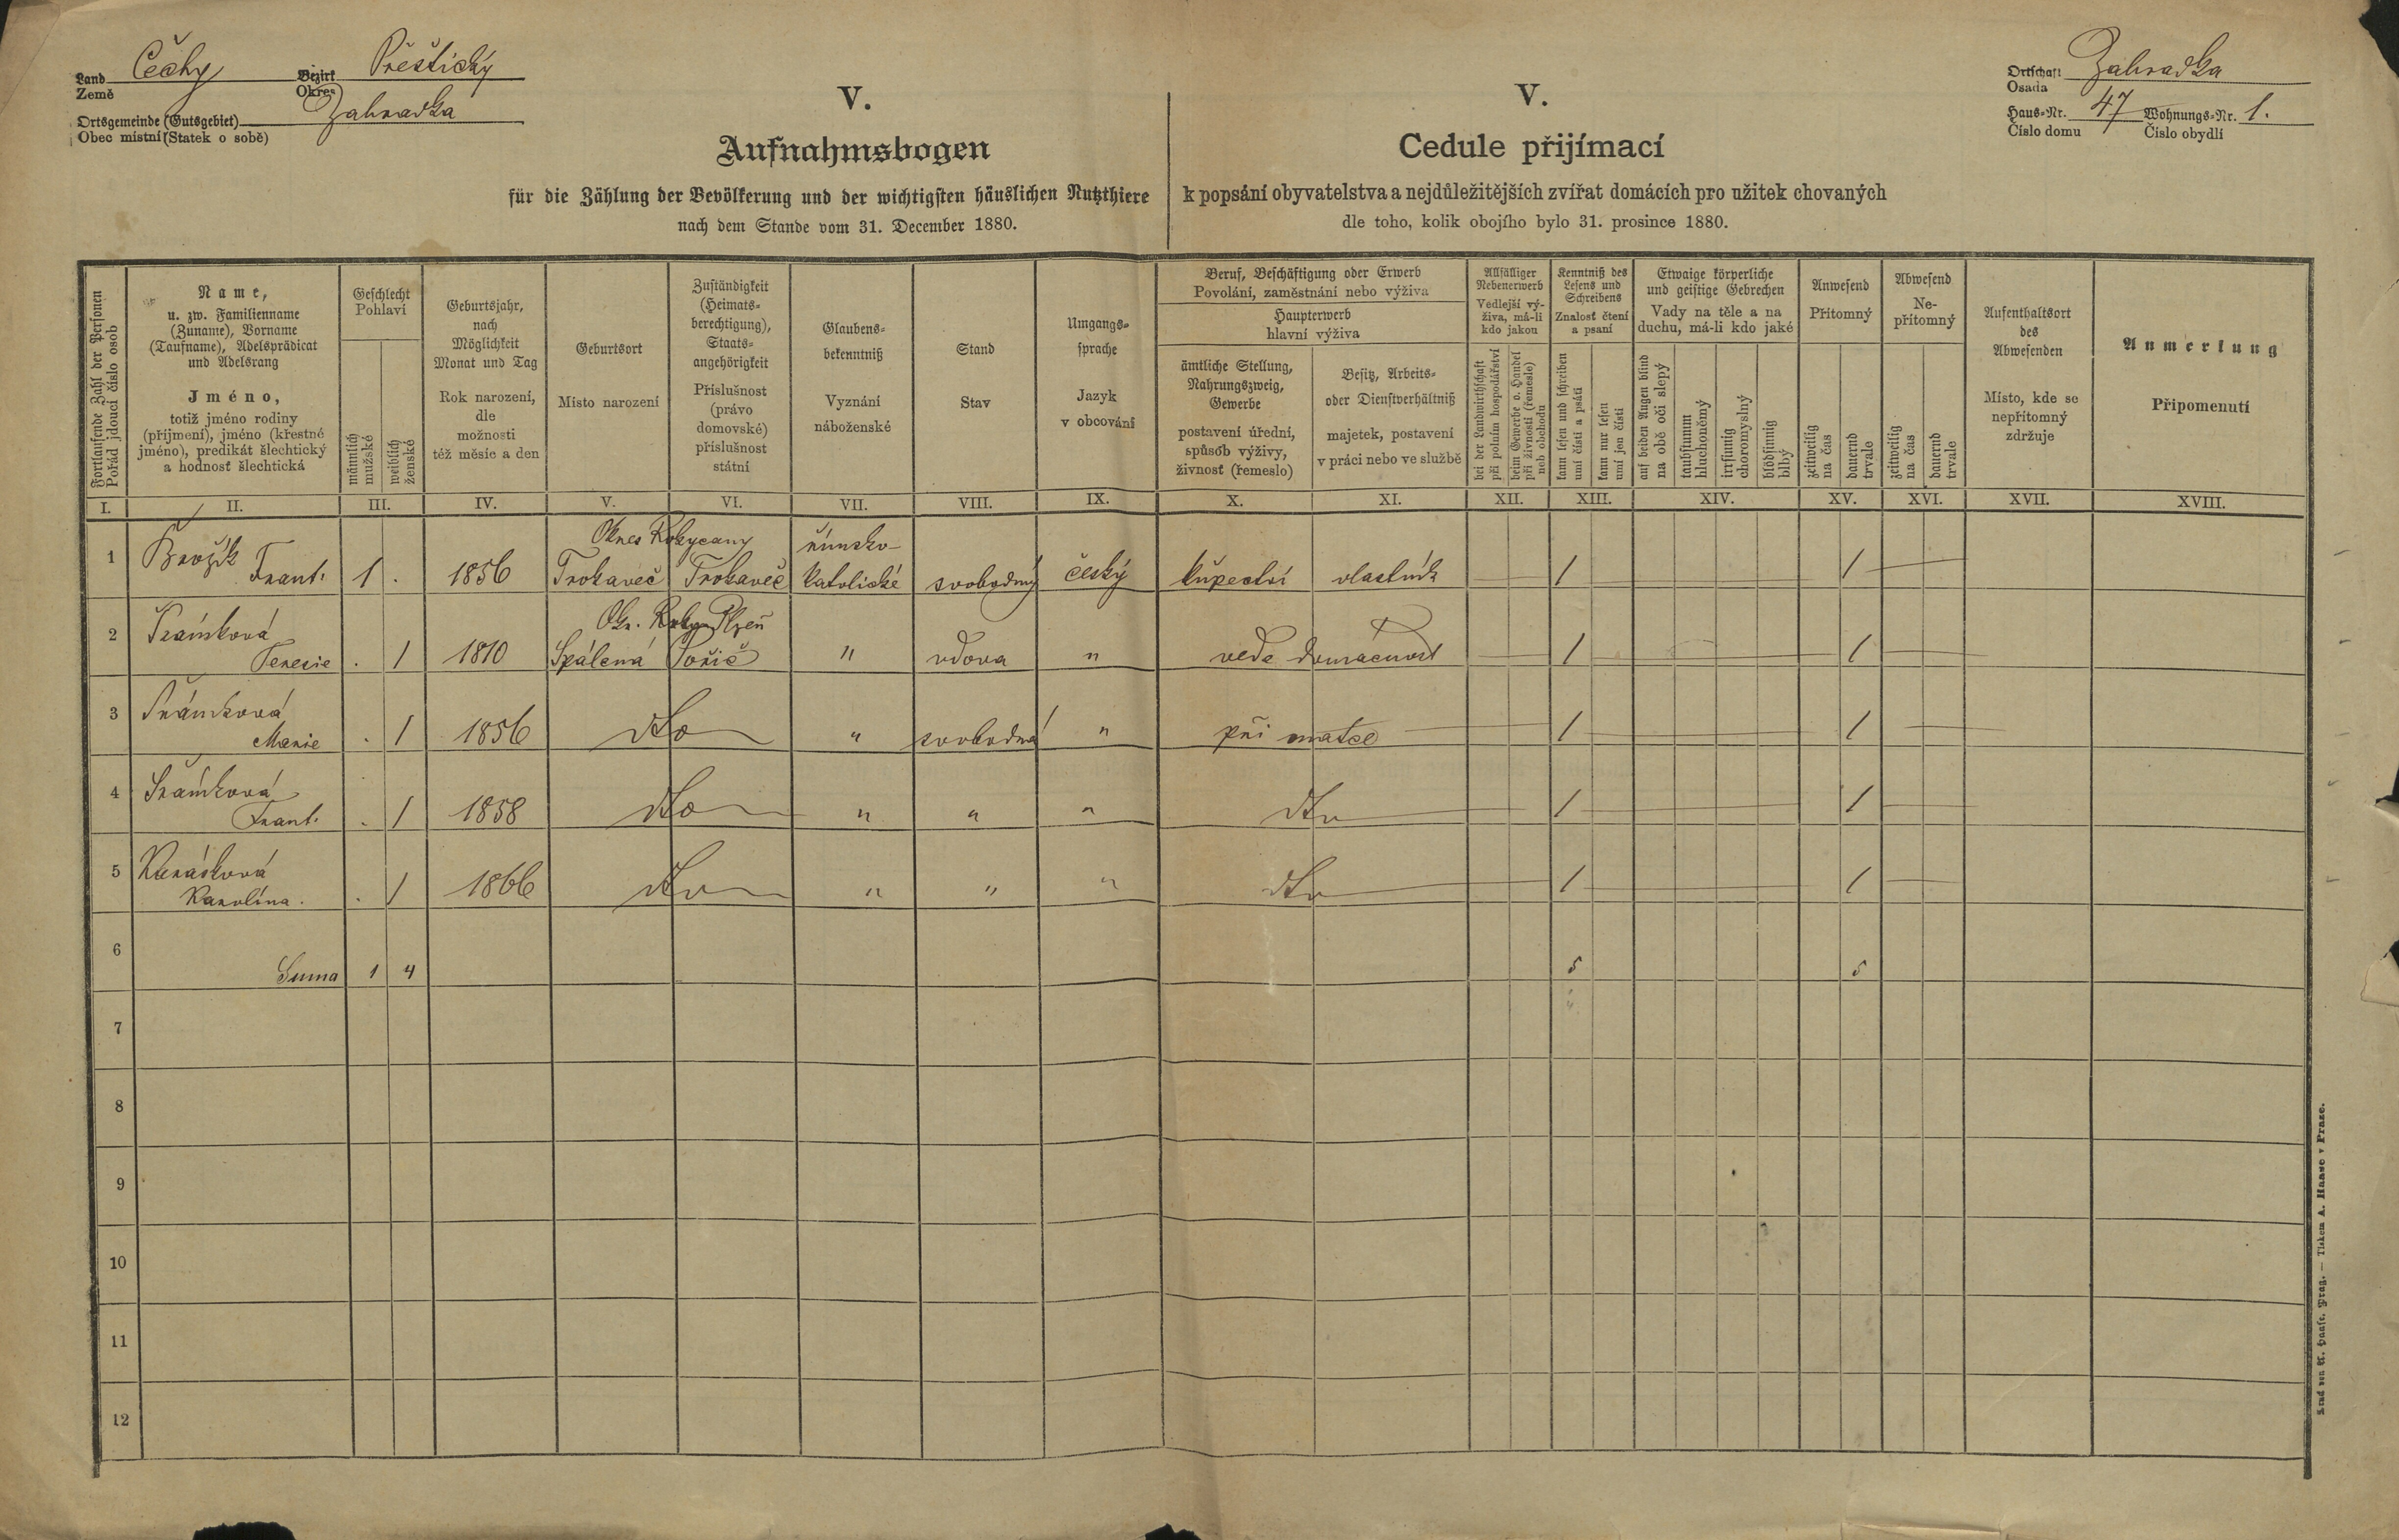 Land Čechy Bezirk Přeštický
Země Okres
Ortsgemeinde (Gutsgebiet) Zahradka
Obec místní (Statek o sobě)
Ortschaft Zahradka
Osada
Haus-Nr. 47 Wohnungs-Nr. 1.
Číslo domu Číslo obydlí
V.
Aufnahmsbogen
für die Zählung der Bevölkerung und der wichtigsten häuslichen Nutzthiere
nach dem Stande vom 31. December 1880.
V.
Cedule přijímací
k popsání obyvatelstva a nejdůležitějších zvířat domácích pro užitek chovaných
dle toho, kolik obojího bylo 31. prosince 1880.
Fortlaufende Zahl der Personen
Pořád jdoucí číslo osob
Name,
u. zw. Familienname
(Zuname), Vorname
(Taufname), Adelsprädicat
und Adelsrang
Jméno,
totiž jméno rodiny
(příjmení), jméno (křestné
jméno), predikát šlechtický
a hodnosť šlechtická
Geschlecht
Pohlaví
männlich
mužské
weiblich
ženské
Geburtsjahr,
nach
Möglichkeit
Monat und Tag
Rok narození,
dle
možnosti
též měsíc a den
Geburtsort
Místo narození
Zuständigkeit
(Heimats-
berechtigung),
Staats-
angehörigkeit
Příslušnost
(právo
domovské)
příslušnost
státní
Glaubens-
bekenntniß
Vyznání
náboženské
Stand
Stav
Umgangs-
sprache
Jazyk
v obcování
Beruf, Beschäftigung oder Erwerb
Povolání, zaměstnání nebo výživa
Haupterwerb
hlavní výživa
ämtliche Stellung,
Nahrungszweig,
Gewerbe
postavení úřední,
spůsob výživy,
živnosť (řemeslo)
Besitz, Arbeits-
oder Dienstverhältniß
majetek, postavení
v práci nebo ve službě
Allfälliger
Nebenerwerb
Vedlejší vý-
živa, má-li
kdo jakou
bei der Landwirthschaft
při polním hospodářství
beim Gewerbe o. Handel
při živnosti (řemesle)
neb obchodu
Kenntniß des
Lesens und
Schreibens
Znalosť čtení
a psaní
kann lesen und schreiben
umí čísti a psáti
kann nur lesen
umí jen čísti
Etwaige körperliche
und geistige Gebrechen
Vady na těle a na
duchu, má-li kdo jaké
auf beiden Augen blind
na obě oči slepý
taubstumm
hluchoněmý
irrsinnig
choromyslný
blödsinnig
blbý
Anwesend
Přítomný
zeitweilig
na čas
dauernd
trvale
Abwesend
Ne-
přítomný
zeitweilig
na čas
dauernd
trvale
Aufenthaltsort
des
Abwesenden
Místo, kde se
nepřítomný
zdržuje
Anmerkung
Připomenutí
I. II. III. IV. V. VI. VII. VIII. IX. X. XI. XII. XIII. XIV. XV. XVI. XVII. XVIII.
Okres Rokycany římsko-
1 Brožík Frant. 1 . 1856 Trokaveč Trokaveč katolické svobodný český kupectví vlastník 1 1
Okr. Plzeň
2 Šrámková Teresie . 1 1810 Spálená Poříč " vdova " vede domácnost 1 1
3 Šrámková Marie . 1 1856 dto " svobodná " při matce 1 1
4 Šrámková Frant. . 1 1858 dto " " " dto 1 1
5 Karolína . 1 1866 dto " " " dto 1 1
6 Suma 1 4 5 5
7
8
9
10
11
12
Druck von A. Haase, Prag. — Tiskem A. Haase v Praze.